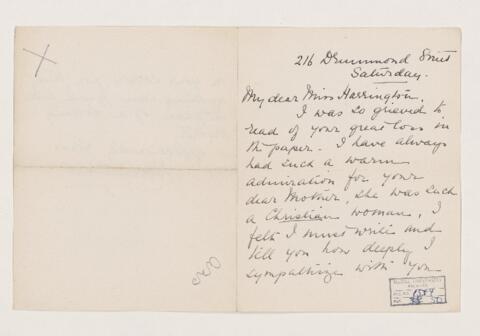 216 Drummond Street
Saturday.
My dear Miss Harrington,
I was so grieved to
read of your great loss in
the paper - I have always
had such a warm
admiration for your
dear Mother, she was such
a Christian woman, I
felt I must write and
tell you how deeply I
sympathize with you